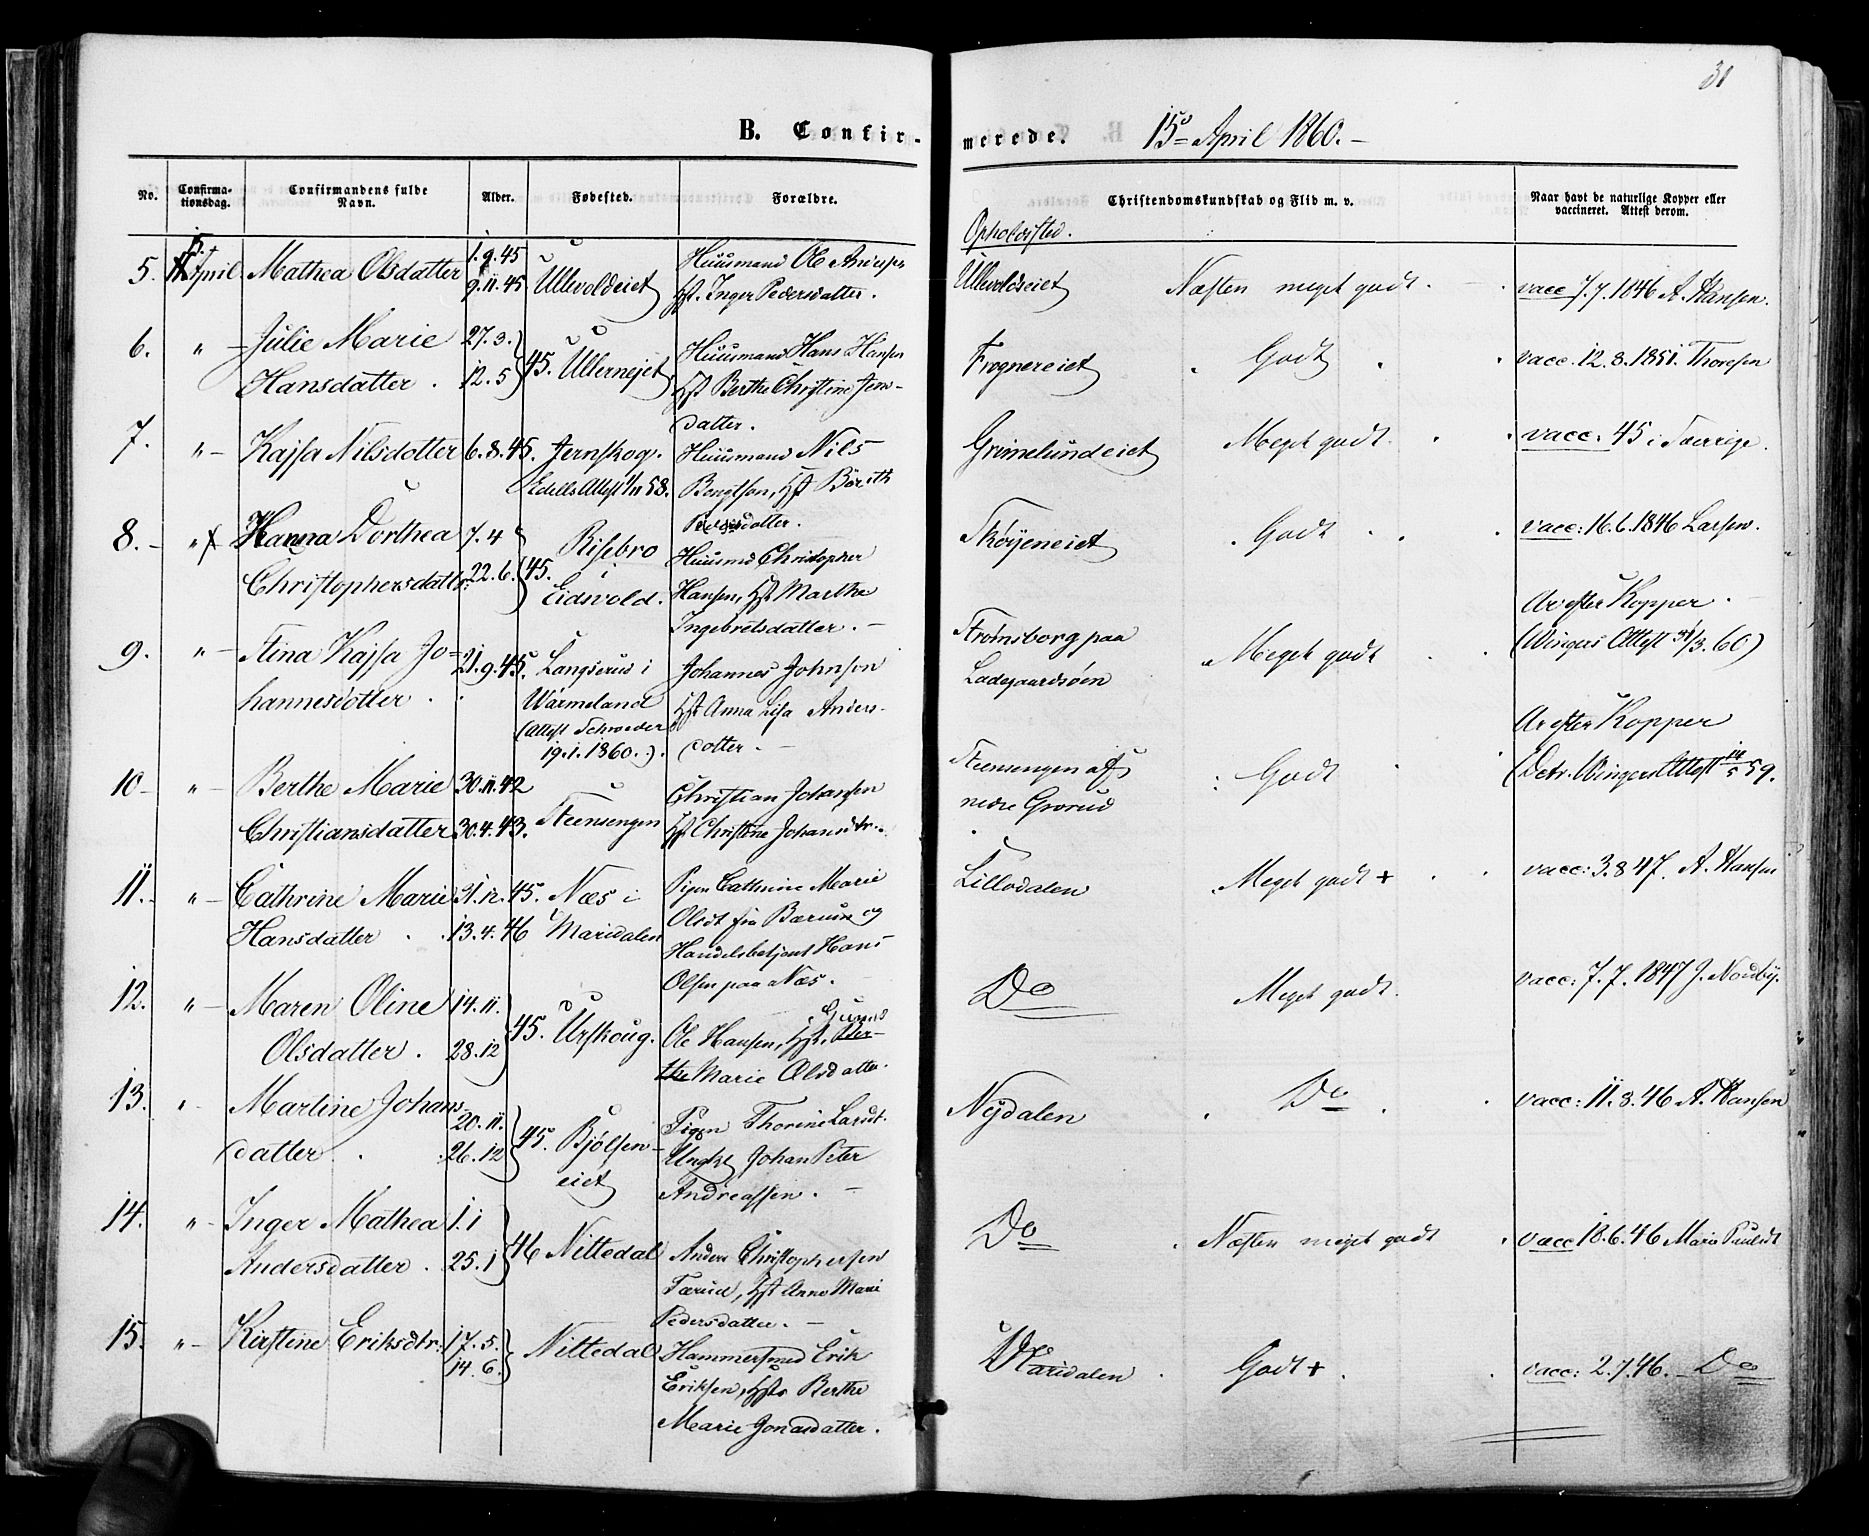 31
B. Confirmerede. 15de April 1860.
No. Confirmationsdag. Confirmandens fulde Navn. Alder. Fødested. Forældre. Christendomskundskab og Flid m. v. Naar havt de naturlige Kopper eller vaccineret. Attest derom.
Opholdssted.
5. 15 April Mathea Olsdatter 1.9.45 Ullevoldeiet Huusmand Ole Ullevoldseiet Næsten meget godt. vacc 7.7.1846 A. Hansen.
9.11.45 Hst. Inger Pedersdatter.
6. " Julie Marie 27.3. 45. Ullernejet Huusmand Hans Hansen Frognereiet Godt vacc. 12.8.1851. Thoresen
Hansdatter. 12.5 Hst Berthe Christine Jens-
datter.
7. " Kajsa Nilsdotter 6.8.45. Jernskog. Huusmand Nils Grimelundeiet Meget godt. vacc. 45 i Sverrige.
Attest 1/11 58. Bengtson, Hst Börith
dotter.
8. " Hanna Dorthea 7.4 45. Risebro Huusmd Christopher Skøyeneiet Godt vacc: 16.6.1846 Larsen.
Christophersdatter 22.6. i Eidsvold. Hansen, Hst Marthe
Ingebretsdatter.
9. " Stina Kajsa Jo- 21.9.45. Langserud i Johannes Johnson Strømsborg paa Meget godt Ar efter Kopper.
hannesdotter. Wärmeland Hst Anna Lisa Anders- Ladegaardsøen (Wingers Attest 31/3. 60)
(Attest Schroeder dotter.
19.1.1860.).
10 " Berthe Marie 30.11.42 Steensengen Christian Johansen Steensengen af Godt Ar efter Kopper
Christiansdatter 30.4.43. Hst Christine Johansdtr. nedre Grorud (Dctr. Wingers Attest 14/5 59.
11. " Cathrine Marie 31.12.45. Næs i Pigen Cathrine Marie Lillodalen Meget godt + vacc: 3.8 47. A. Hansen
Hansdatter 13.4.46 Maridalen Olsdt fra Bærum og
Handelsbetjent Hans
Olsen paa Næs.
12. " Maren Oline 14.11. 45. Urskoug. Ole Hansen, Hst. Gunna Ber- Do Meget godt. vacc: 7.7.1847 J. Nordby.
Olsdatter. 28.12 the Marie Olsdatter.
13. " Martine Johans- 20.11. 45. Bjølsen- Pigen Thorine Larsdt. Nydalen Do vacc: 11.8.46 A. Hansen
datter. 26.12 eiet Ungkl Johan Peter
Andreassen.
14. " Inger Mathea 1.1 46 Nittedal Anders Christophersen Do Næsten meget godt vacc 18.6.46 Marie Paulsdt
Andersdatter. 25.1 Færud, Hst Anne Marie
Pedersdatter.
15. " Kirstine Eriksdtr. 17.5. Nittedal Hammersmed Erik Maridalen Godt + vacc: 2.7.46. Do
14.6. Eriksen, Hst Berthe
Marie Jonasdatter.